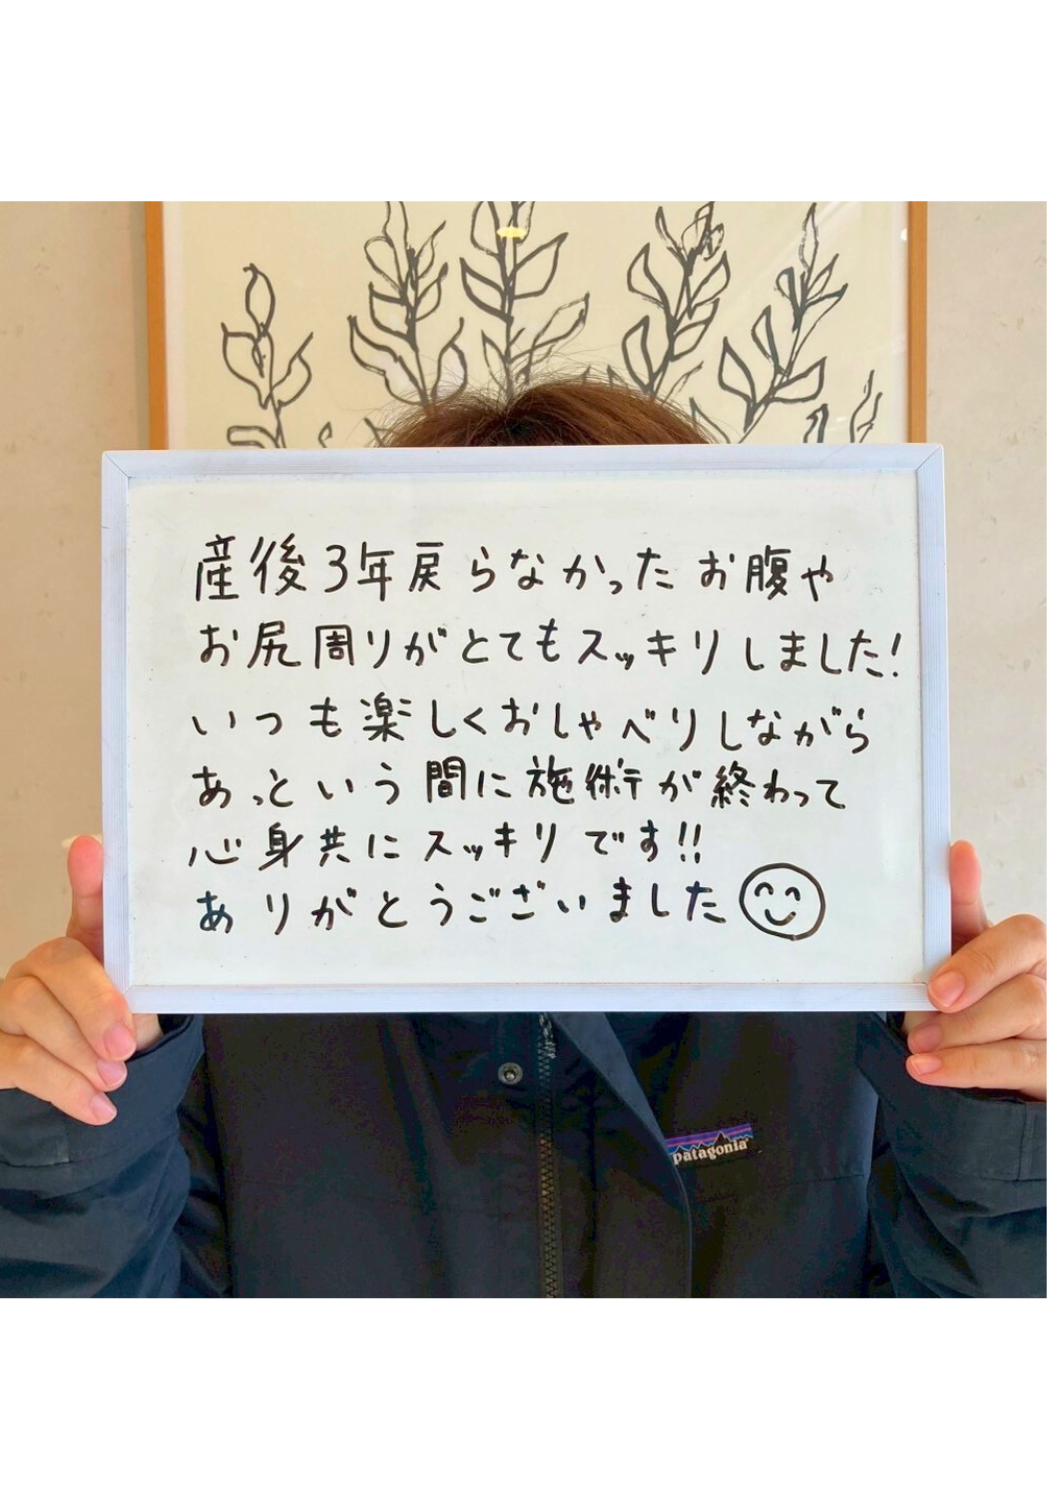 産後3年戻らなかったお腹や
お尻周りがとてもスッキリしました!
いつも楽しくおしゃべりしながら
あっという間に施術が終わって
心身共にスッキリです!!
ありがとうございました
patagonia